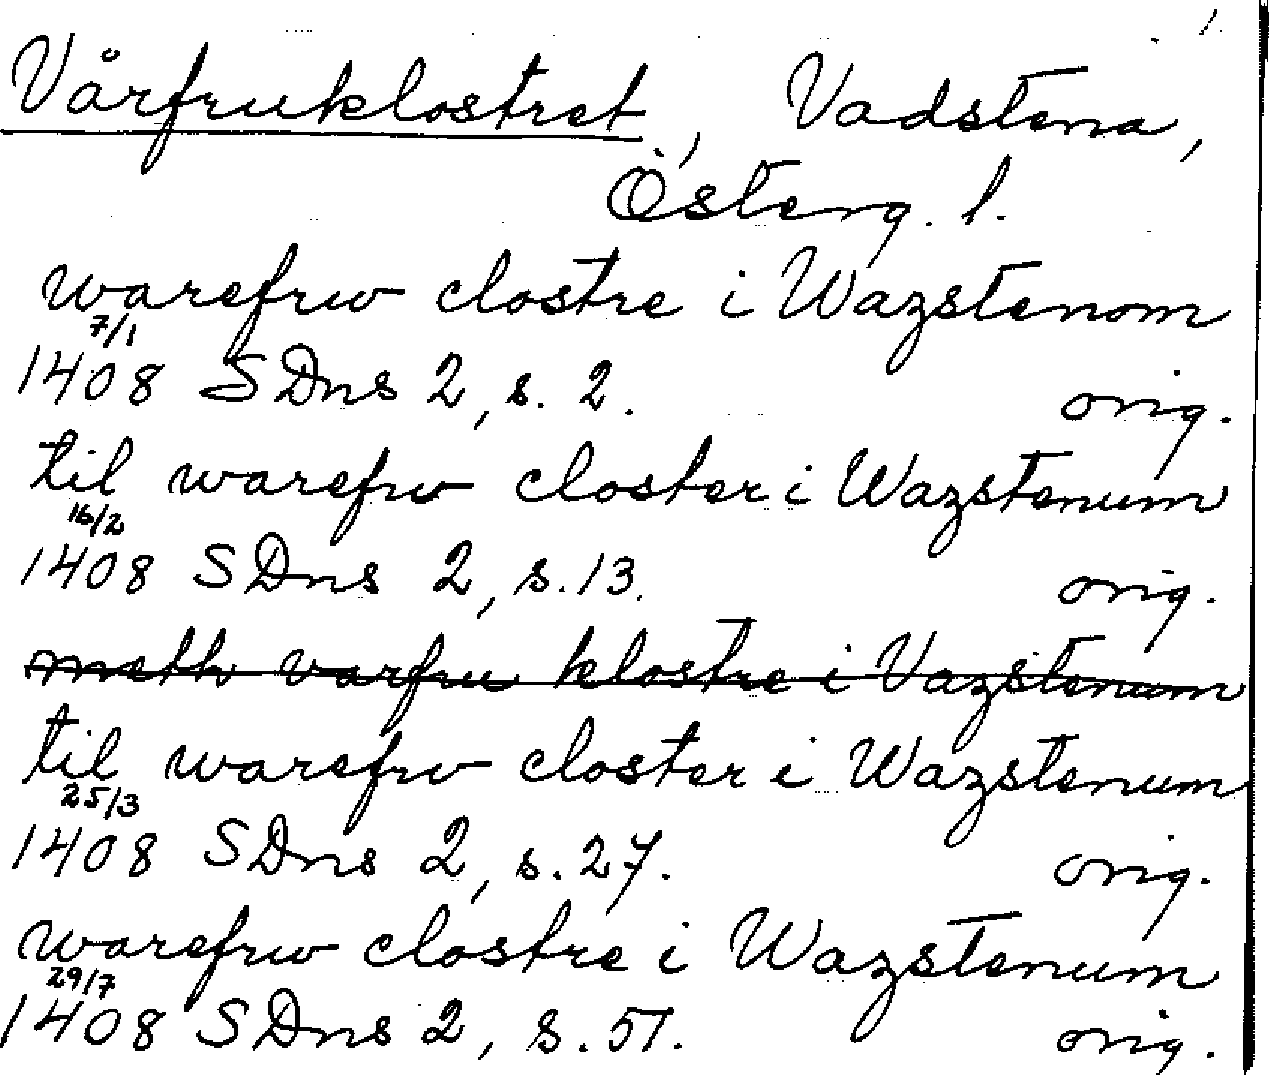 1.
Vårfruklostret, Vadstena,
Österg. l.
warefrw clostre i Wazstenom
7/1
1408 SDns 2, s. 2. orig.
til warefrw closter i Wazstenum
16/2
1408 SDns 2, s. 13. orig.
meth varfru klostre i Vazstenum
til warefrw closter i Wazstenum
25/3
1408 SDns 2, s. 27. orig.
warefrw clostre i Wazstenum
29/7
1408 SDns 2, s. 51. orig.